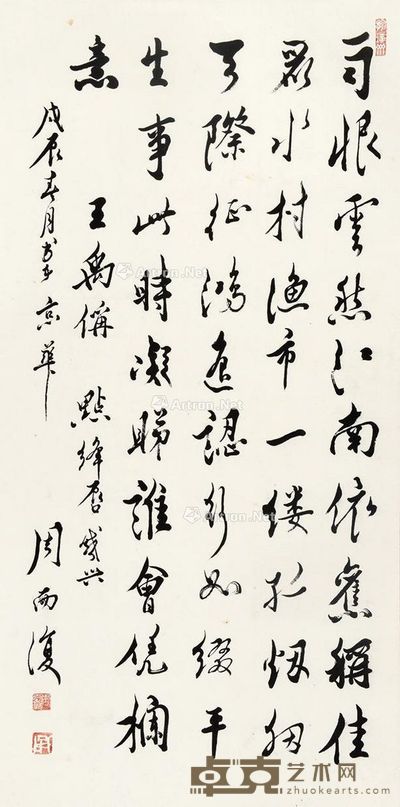 雨恨雲愁江南依舊稱佳
麗水村漁市一縷孤烟細
天際征鴻遙認行如綴平
生事此時凝睇誰會凭欄
意
王禹偁 點絳唇 感興
戊辰春月書於京華 周而復
Artron.Net
艺术网
www.zhuokearts.com